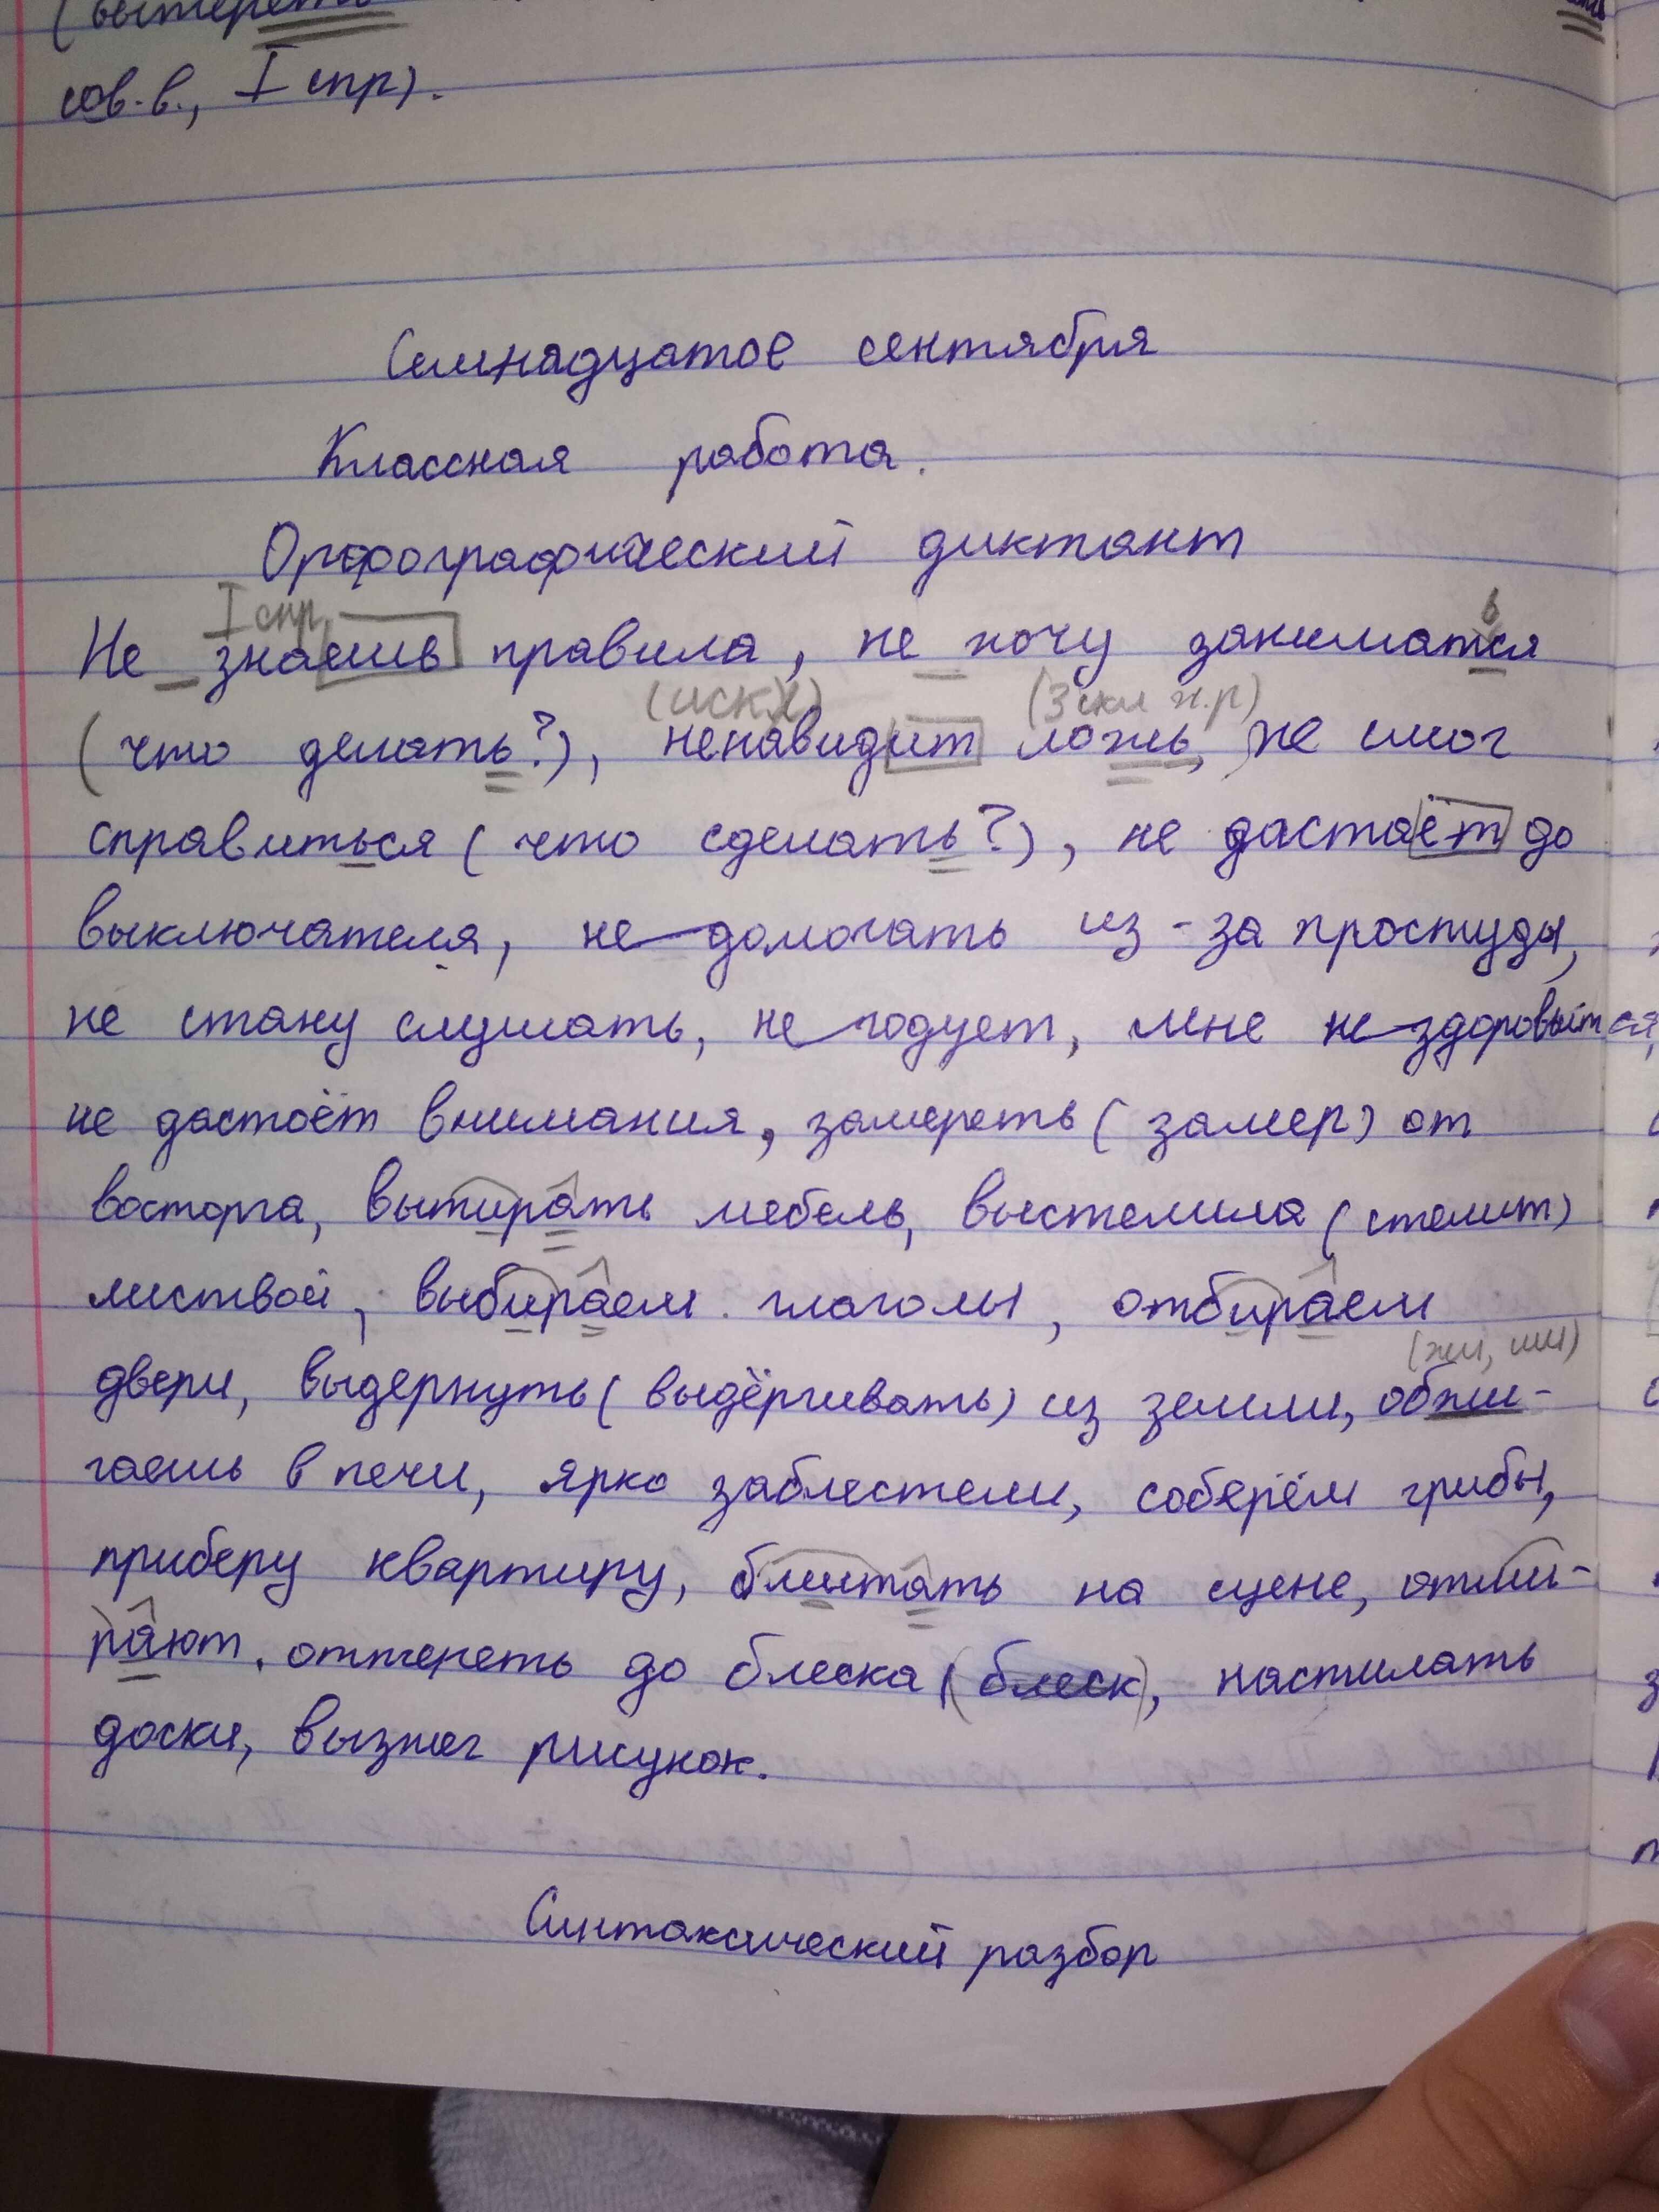 (вытереть
сов.в., I спр).
Семнадцатое сентября
Классная работа.
Орфографический диктант
I спр,
Не знаешь правила, не хочу заниматся
ь
(искл) (3 скл ж.р)
(что делать?), ненавидит ложь, не смог
справиться (что сделать?), не дастаёт до
выключателя, не домогать из-за простуды,
не стану слушать, не годует, мне не здоровится,
не достоёт внимания, замереть (замер) от
восторга, вытирать мебель, выстелила (стелит)
листвой, выбираем глаголы, отбираем
(жи, ши)
двери, выдернуть (выдёргивать) из земли, обжи-
гаешь в печи, ярко заблестели, соберём грибы,
приберу квартиру, блистать на сцене, отми-
рают, оттереть до блеска (блеск), настилать
доски, выжег рисунок.
Синтаксический разбор